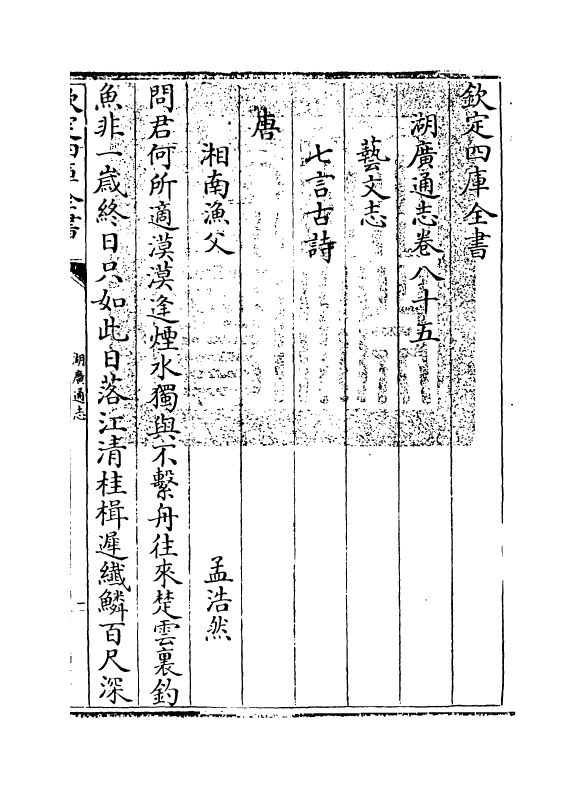 欽定四庫全書
湖廣通志卷八十五
藝文志
七言古詩
唐
湘南漁父　孟浩然
問君何所適漠漠逢煙水獨與不繫舟往來楚雲裏釣
魚非一歲終日只如此日落江清桂楫遲纖鱗百尺深
欽定四庫全書
湖廣通志
一